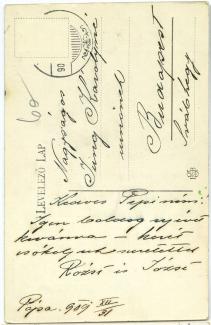 LEVELEZŐ LAP
Nagyságos
Jung Károlyné
urnőnek
Budapest
Svábhegy
Kedves Pepi néni!
Igen boldog uj évet
kivánna – kezét
csókoljuk szeretettel
Rózsi és Józsi
Pápa. 909 XII/31